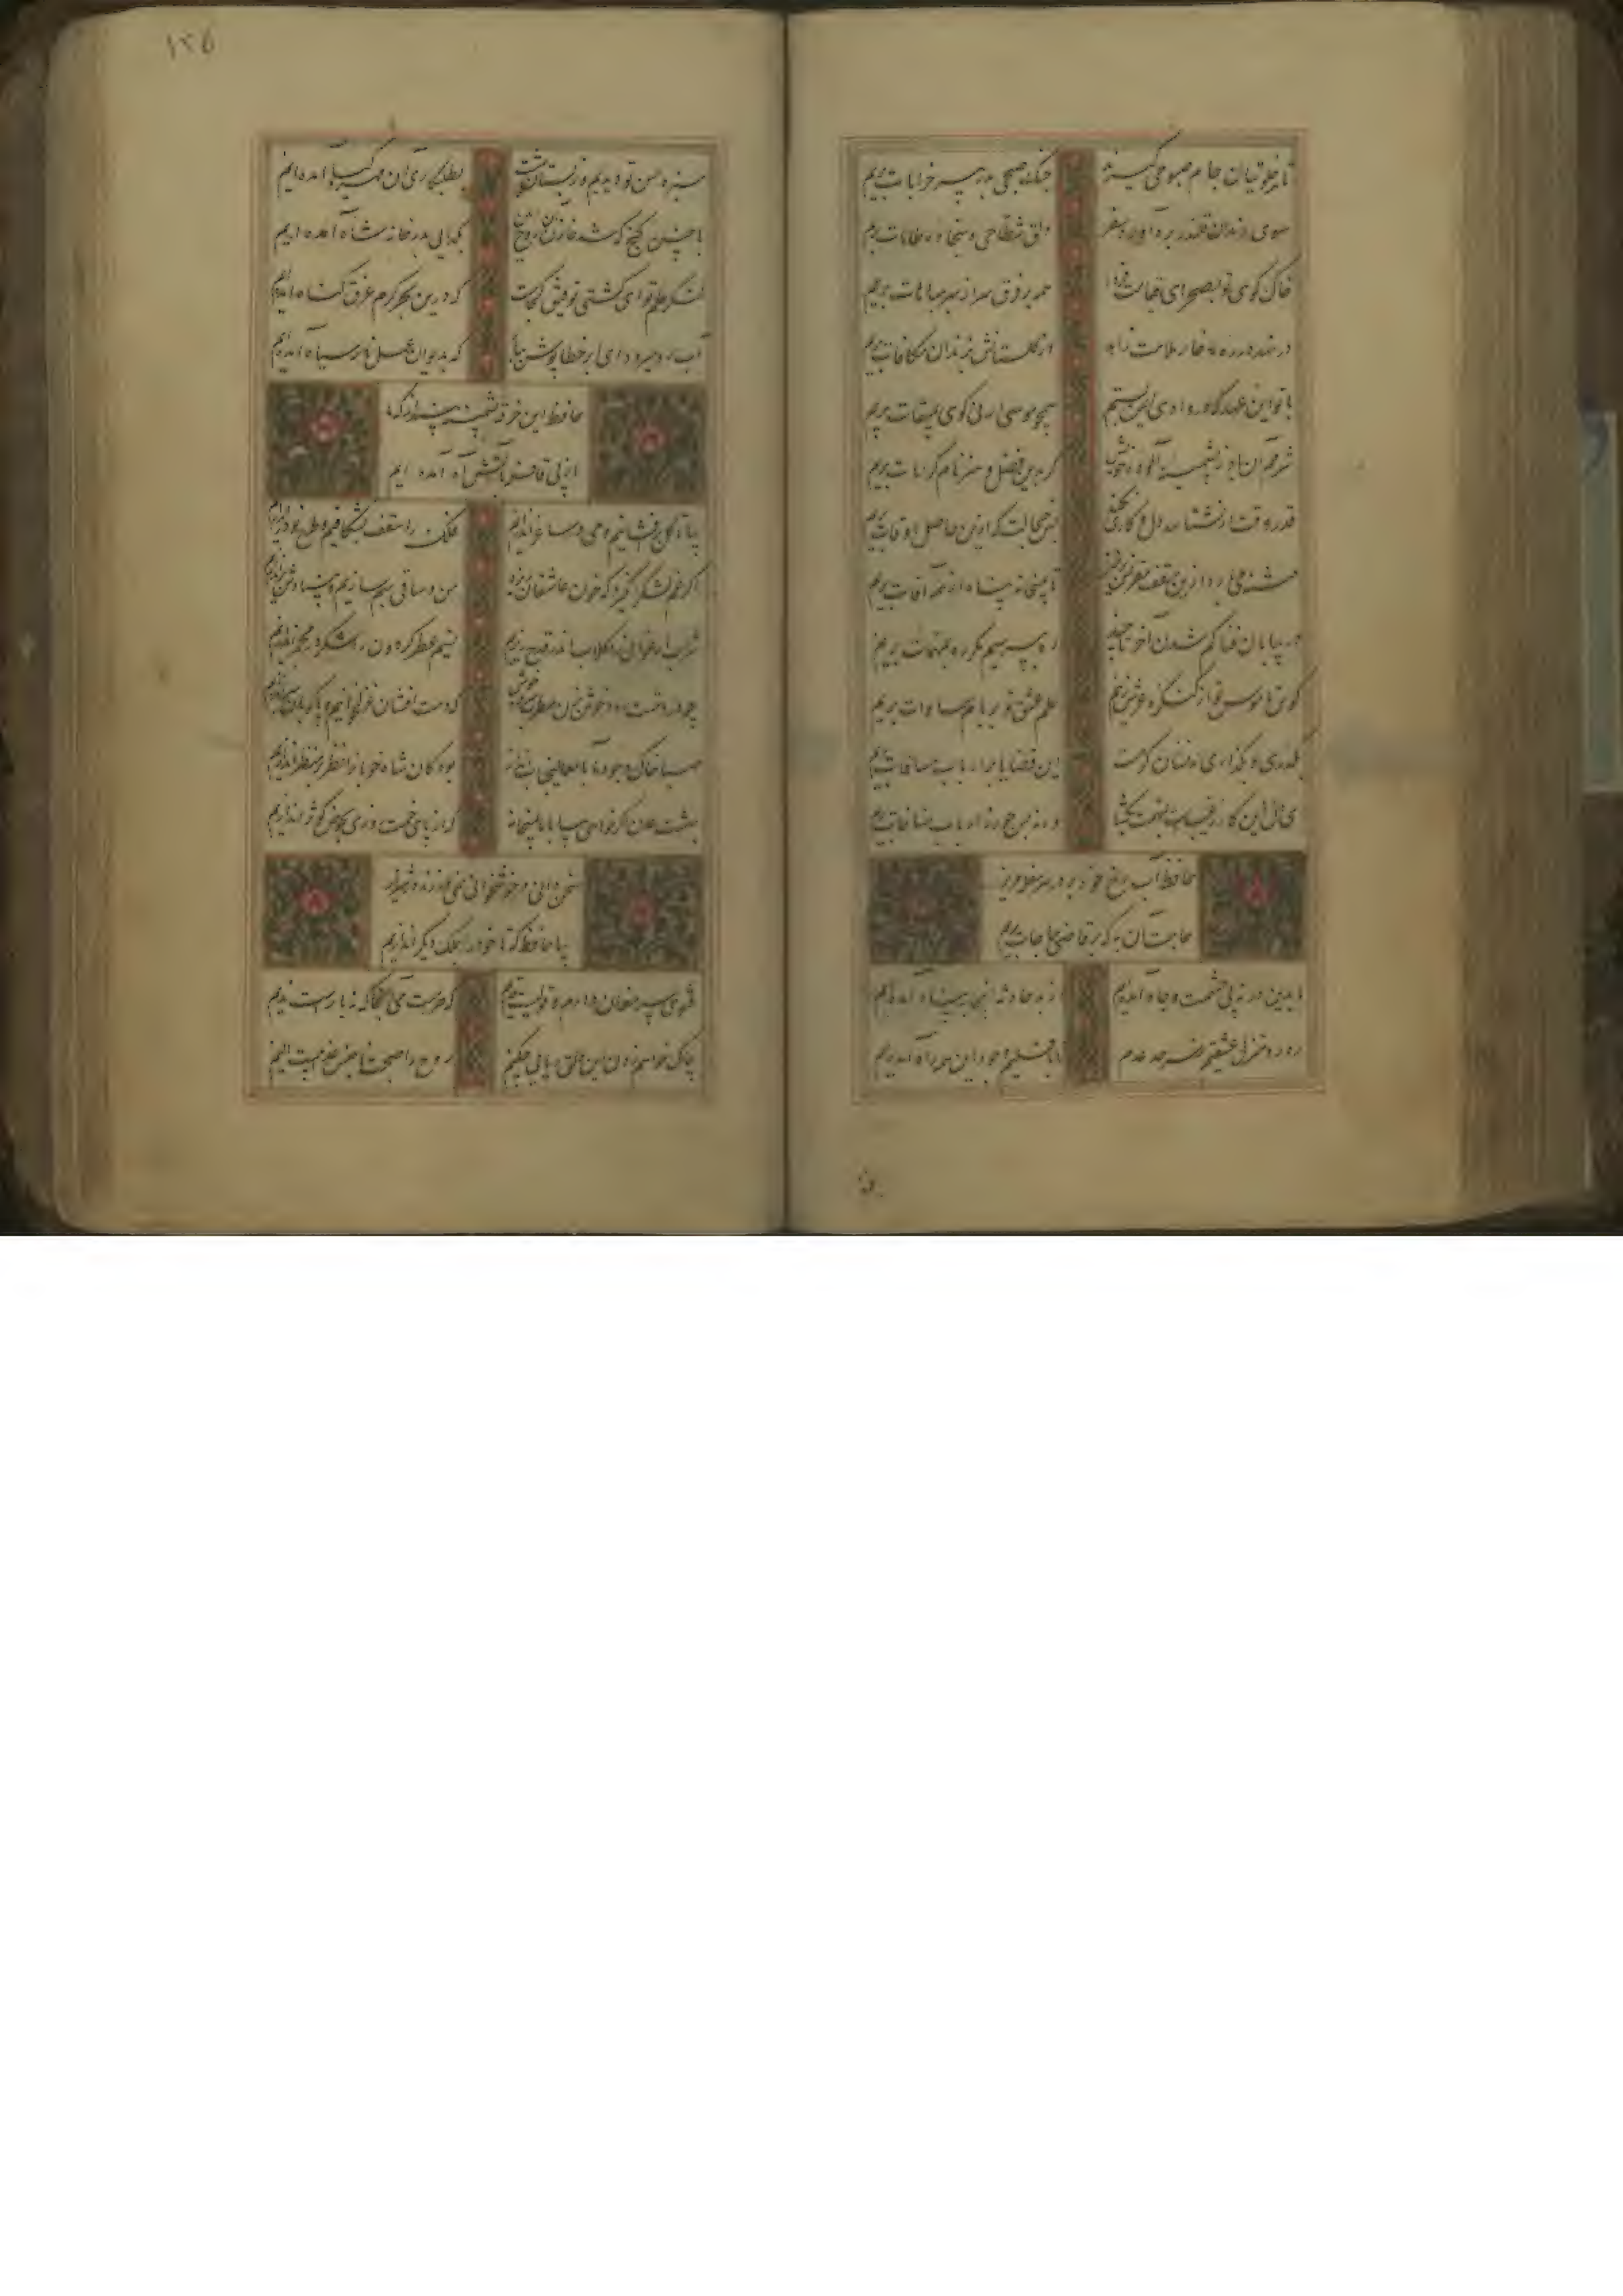 تا همه خلوتیان جام صبوحی گیرند
چنگ صبحی بدر پیر خرابات بریم
سوی رندان قلندر بره آورد سفر
دلق شطاحی و سجاده طامات بریم
خاک کوی تو بصحرای قیامت فردا
همه بر فرق سر از بهر مباهات بریم
در نهد در ره ما خار ملامت زاهد
از گلستانش بزندان مکافات بریم
با تو این عهد که در وادی ایمن بستیم
همچو موسی ارنی گوی بمیقات بریم
شرممان باد ز پشمینه آلوده خویش
گر بدین فضل و هنر نام کرامات بریم
قدر وقت ار نشناسد دل و کاری نکند
بس خجالت که ازین حاصل اوقات بریم
فتنه می بارد ازین سقف مقرنس برخیز
تا بمیخانه پناه از همه آفات بریم
در بیابان فنا گم شدن آخر تا چند
ره بپرسیم مگر ره بمهمات بریم
کوس ناموس تو از کنگره عرش زنیم
علم عشق تو بر بام سماوات بریم
این قضایا بر ارباب
حافظ آب رخ خود بر در هر سفله مریز
حاجت آن به که بر قاضی حاجات بریم
ما بدین در نه پی حشمت و جاه آمده‌ایم
از بد حادثه اینجا بپناه آمده‌ایم
ره رو منزل عشقیم و ز سرحد عدم
تا باقلیم وجود این همه راه آمده‌ایم
۱۲۵
سبزه حسن تو دیدیم و ز بستان بهشت
بطلبکاری آن مهر گیا آمده‌ایم
با چنین گنج که شد خازن آن روح امین
بگدایی بدر خانه شاه آمده‌ایم
لنگر حلم تو ای کشتی توفیق کجاست
که درین بحر کرم غرق گناه آمده‌ایم
آب رو میرود ای ابر خطا پوش ببار
که بدیوان عمل نامه سیاه آمده‌ایم
حافظ این خرقه پشمینه بینداز که ما
از پی قافله با آتش آه آمده ایم
بیا تا گل برافشانیم و می در ساغر اندازیم
فلک را سقف بشکافیم و طرح نو دراندازیم
اگر غم لشکر انگیزد که خون عاشقان ریزد
من و ساقی بهم سازیم و بنیادش براندازیم
شراب ارغوانی را گلاب اندر قدح ریزیم
نسیم عطر گردان را شکر در مجمر اندازیم
چو در دستست رودی خوش بزن مطرب سرودی خوش
که دست افشان غزل خوانیم و پاکوبان سر اندازیم
صبا خاک وجود ما بدان عالی جناب انداز
بود کان شاه خوبان را نظر بر منظر اندازیم
بهشت عدن اگر خواهی بیا با ما بمیخانه
که از پای خمت روزی بحوض کوثر اندازیم
سخن دانی و خوشخوانی نمی ورزند در شیراز
بیا حافظ که تا خود را بملک دیگر اندازیم
فتوی پیر مغان دارم و قولیست قدیم
که حرامست می آنجا که نه یارست ندیم
چاک خواهم زدن این دلق ریایی چکنم
روح را صحبت ناجنس عذابیست الیم